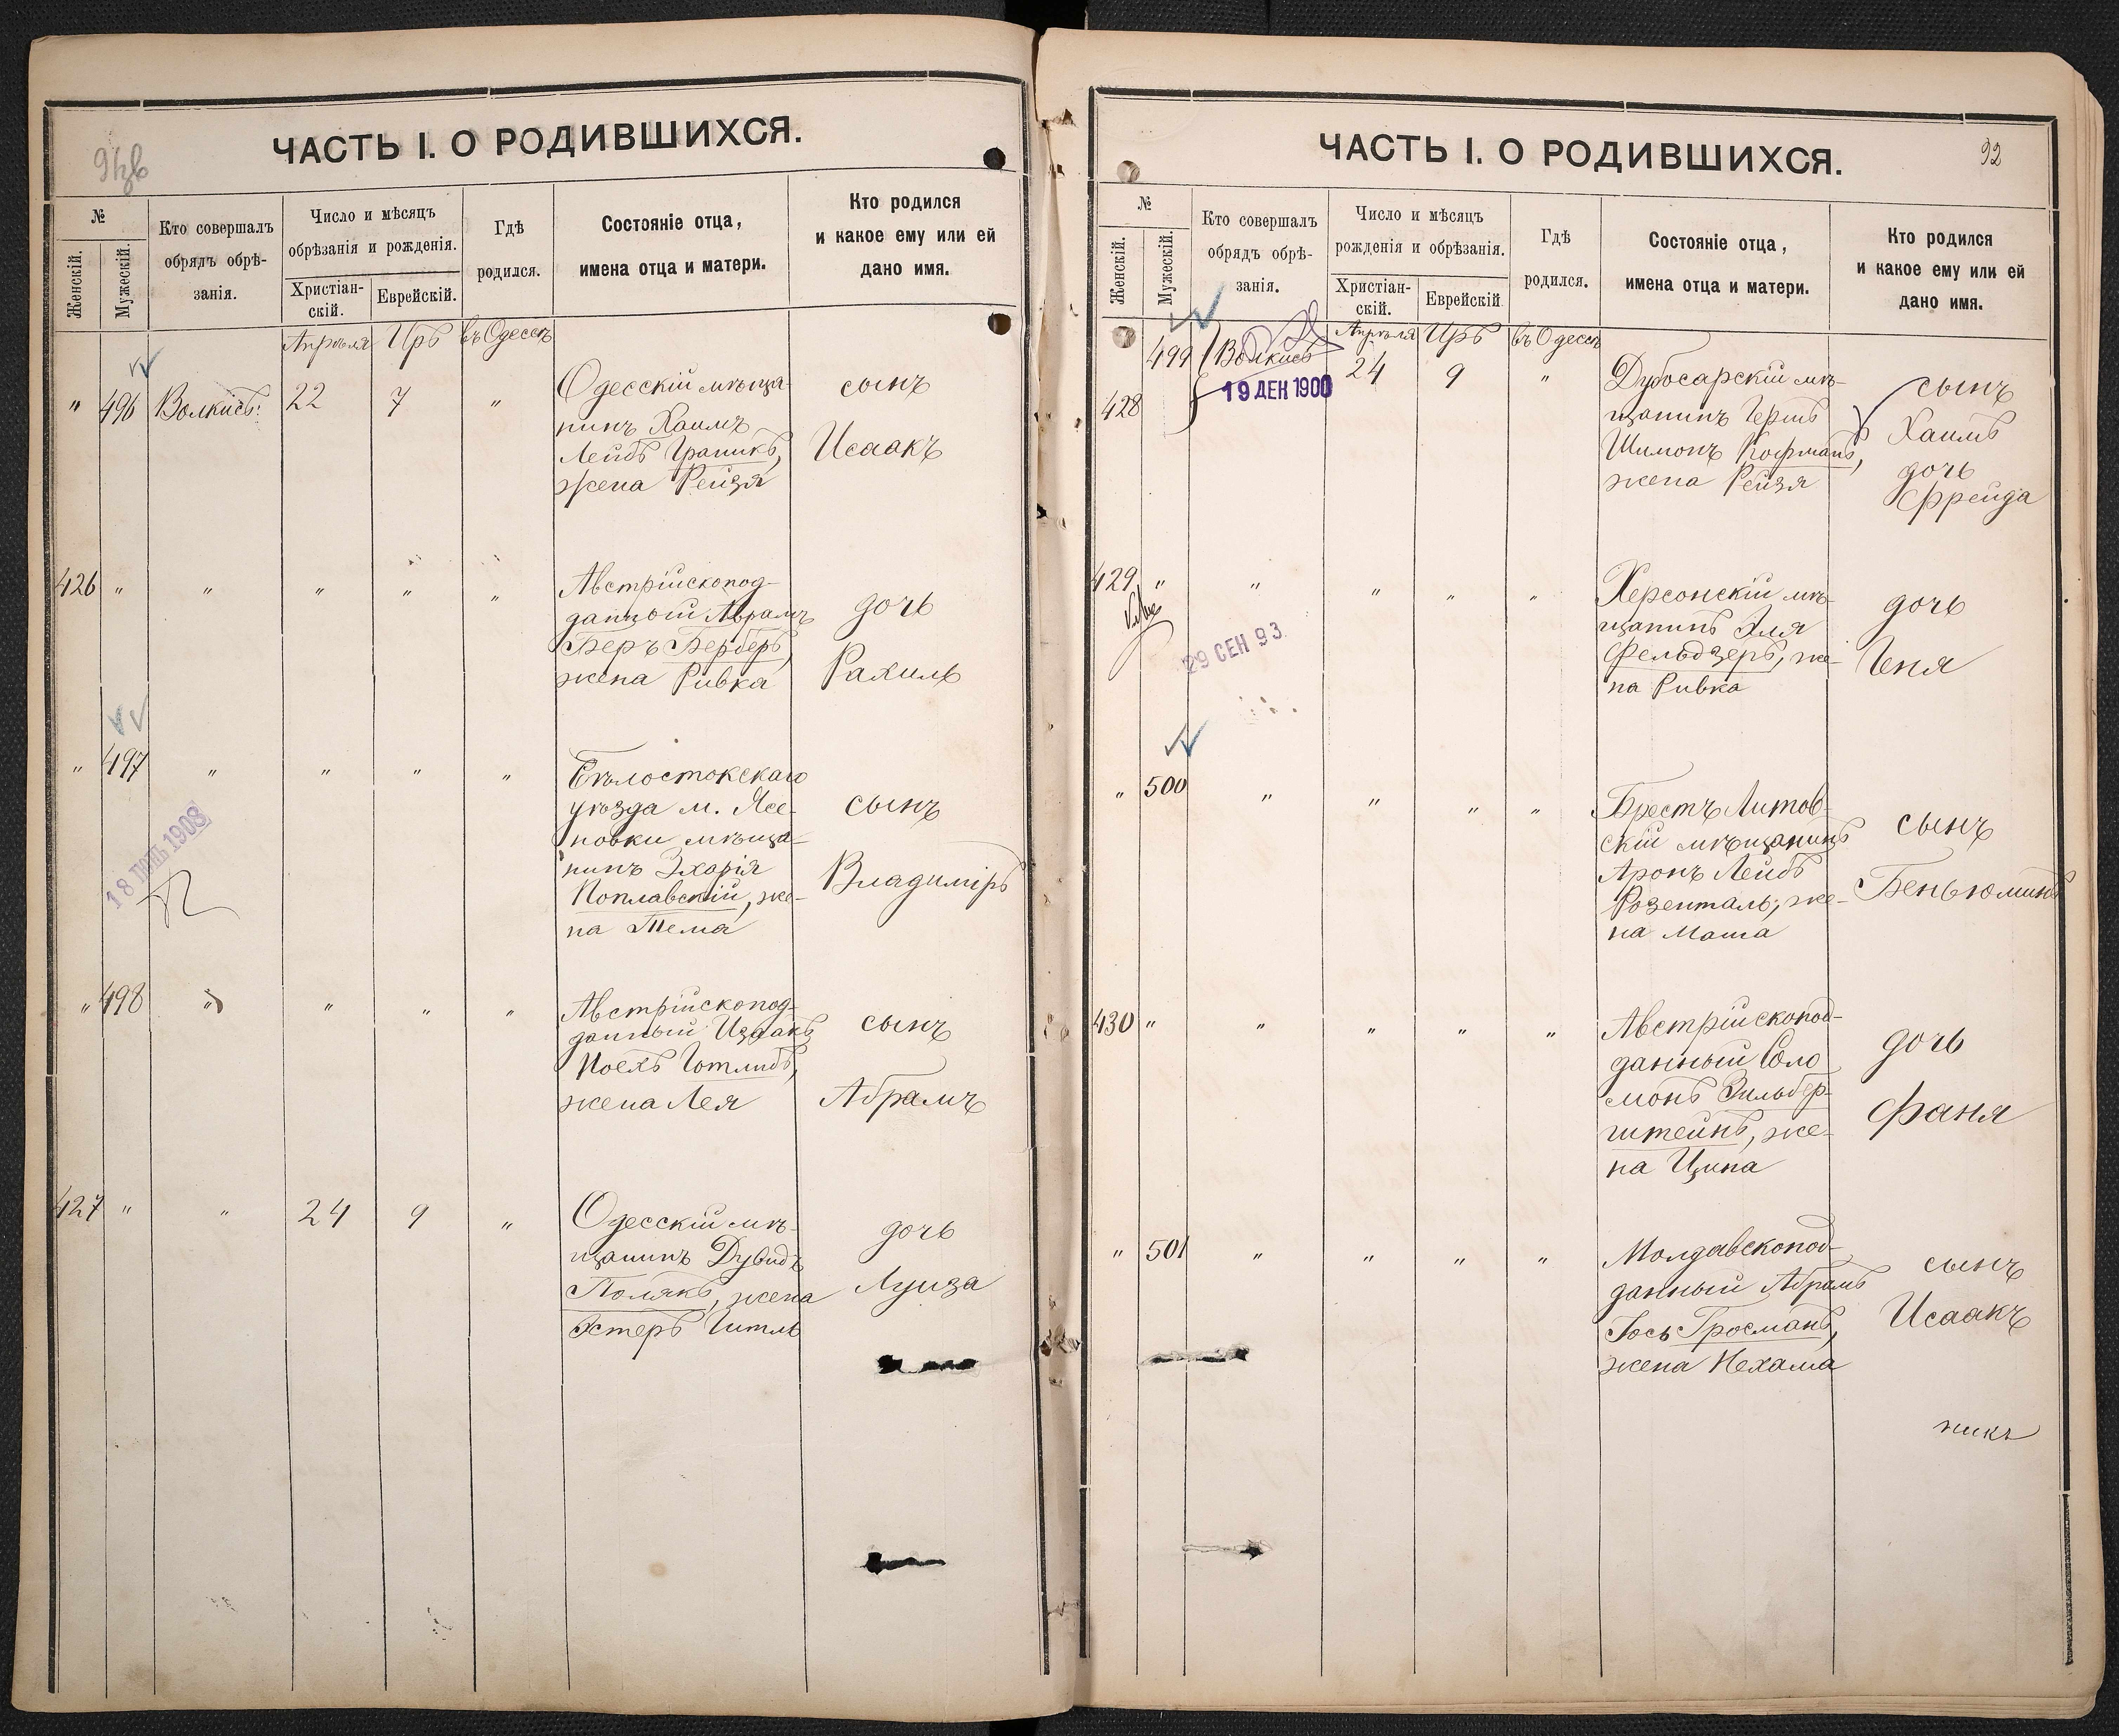 ЧАСТЬ I. О РОДИВШИХСЯ.
№
Женскій.
Мужескій.
Кто совершалъ
обрядъ обрѣ-
занія.
Число и мѣсяцъ
обрѣзанія и рожденія.
Христіан-
скій.
Еврейскій.
Гдѣ
родился.
Состояніе отца,
имена отца и матери.
Кто родился
и какое ему или ей
дано имя.
Апрѣля Иръ въ Одессѣ
" 496 Волкисъ 22 7 "
Одесскій мѣща-
нинъ Хаимъ
Лейбъ Граникъ,
жена Рейзя
сынъ
Исаакъ
426 " " " " "
Австрійскопод-
данный Абрамъ
Беръ Берберъ,
жена Ривка
дочь
Рахиль
" 497 " " " "
18 1908
Бѣлостокскаго
уѣзда м. Ясе-
новки мѣща-
нинъ Зхарія
Поплавскій, же-
на Тема
сынъ
Владиміръ
" 498 " " " "
Австрійскопод-
данный Изаакъ
Іоель Готлибъ,
жена Лея
сынъ
Абрамъ
427 " " 24 9 "
Одесскій мѣ-
щанинъ Дувидъ
Полякъ, жена
Эстеръ Гитль
дочь
Луиза
ЧАСТЬ I. О РОДИВШИХСЯ.
92
№
Женскій.
Мужескій.
Кто совершалъ
обрядъ обрѣ-
занія.
Число и мѣсяцъ
рожденія и обрѣзанія.
Христіан-
скій.
Еврейскій
Гдѣ
родился.
Состояніе отца,
имена отца и матери.
Кто родился
и какое ему или ей
дано имя.
Апрѣля Иръ въ Одессѣ
499 Волкисъ 24 9 "
428
19 ДЕК 1900
Дубосарскій мѣ-
щанинъ Гершъ
Шимонъ Кофманъ,
жена Рейзя
сынъ
Хаимъ
дочь
Фрейда
429 " " " " "
29 СЕН 93
Херсонскій мѣ-
щанинъ Эля
Фельдзеръ, же-
на Ривка
дочь
Геня
" 500 " " " "
Брестъ Литов-
скій мѣщанинъ
Аронъ Лейбъ
Розенталь, же-
на Маша
сынъ
Беньюминъ
430 " " " " "
Австрійскопод-
данный Соло
монъ Зильбер-
штейнъ, же-
на Ципа
дочь
Фаня
" 501 " " " "
Молдавскопод-
данный Абрамъ
Іось Гросманъ,
жена Нехама
сынъ
Исаакъ